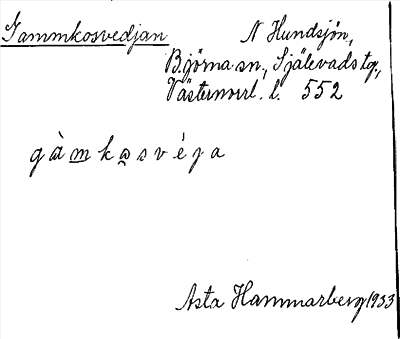 Gammkosvedjan
N Hundsjön,
Björna sn., Själevads tg.,
Västernorrl. l. 552
gàmkɷsvéja
Asta Hammarberg 1933